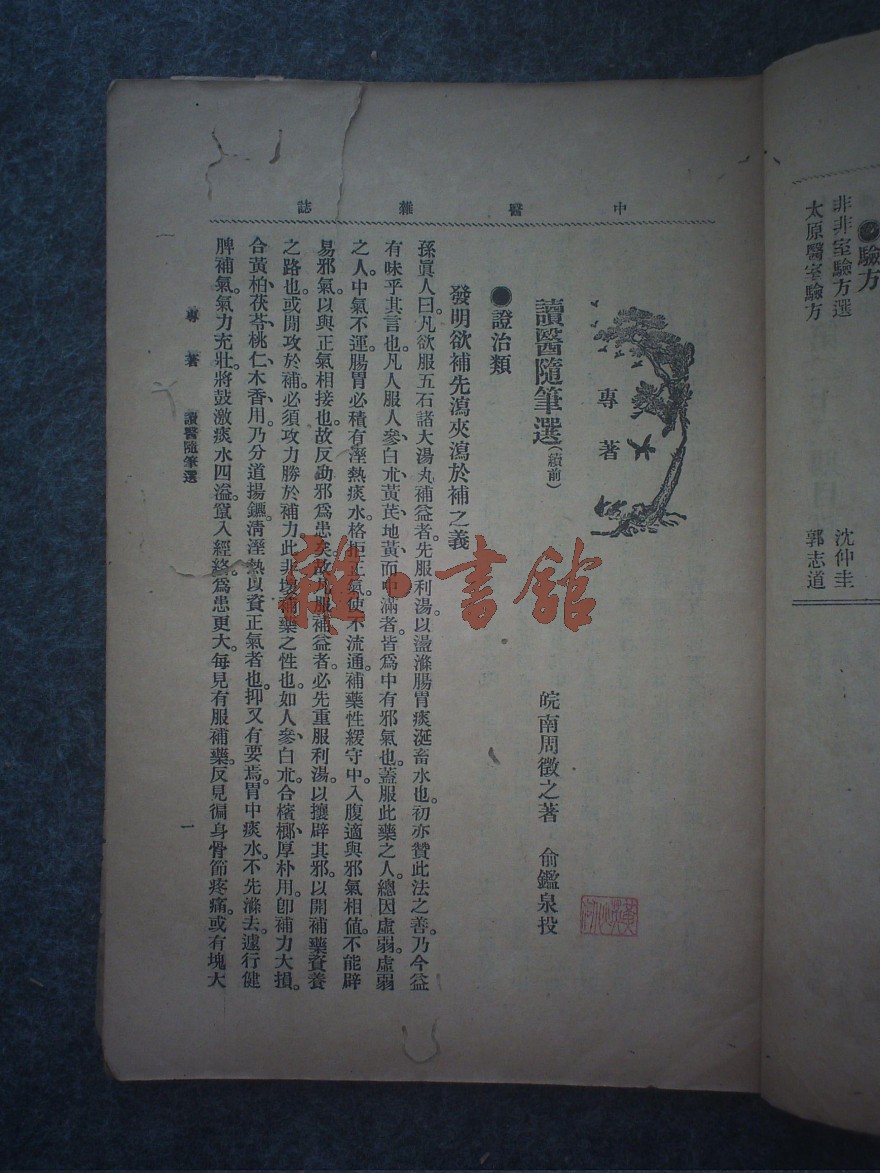 中醫雜誌
專著
讀醫隨筆選(續前)
皖南周徵之著 俞鑑泉投
●證治類
發明欲補先瀉夾瀉於補之義
孫眞人曰。凡欲服五石諸大湯丸補益者。先服利湯以盪滌腸胃痰涎畜水也。初亦贊此法之善。乃今益
有味乎其言也。凡人服人參、白朮、黃芪、地黃、而中滿者。皆爲中有邪氣也。蓋服此藥之人。總因虛弱。虛弱
之人。中氣不運。腸胃必積有溼熱痰水。格拒正氣。使不流通。補藥性緩守中。入腹適與邪氣相値。不能辟
易邪氣。以與正氣相接也。故反助邪爲患矣。故凡服補益者。必先重服利湯。以攘辟其邪。以開補藥資養
之路也。或閒攻於補。必須攻力勝於補力。此非壞補藥之性也。如人參、白朮。合檳榔、厚朴用。卽補力大損。
合黃柏、茯苓、桃仁、木香、用。乃分道揚鑣。淸溼熱以資正氣者也。抑又有要焉。胃中痰水。不先滌去。遽行健
脾補氣。氣力充壯。將鼓激痰水四溢。竄入經絡。爲患更大。每見有服補藥。反見徧身骨節疼痛。或有塊大
專著 讀醫隨筆選
一
●驗方
非非室驗方選 沈仲圭
太原醫室驗方 郭志道
雜·書館